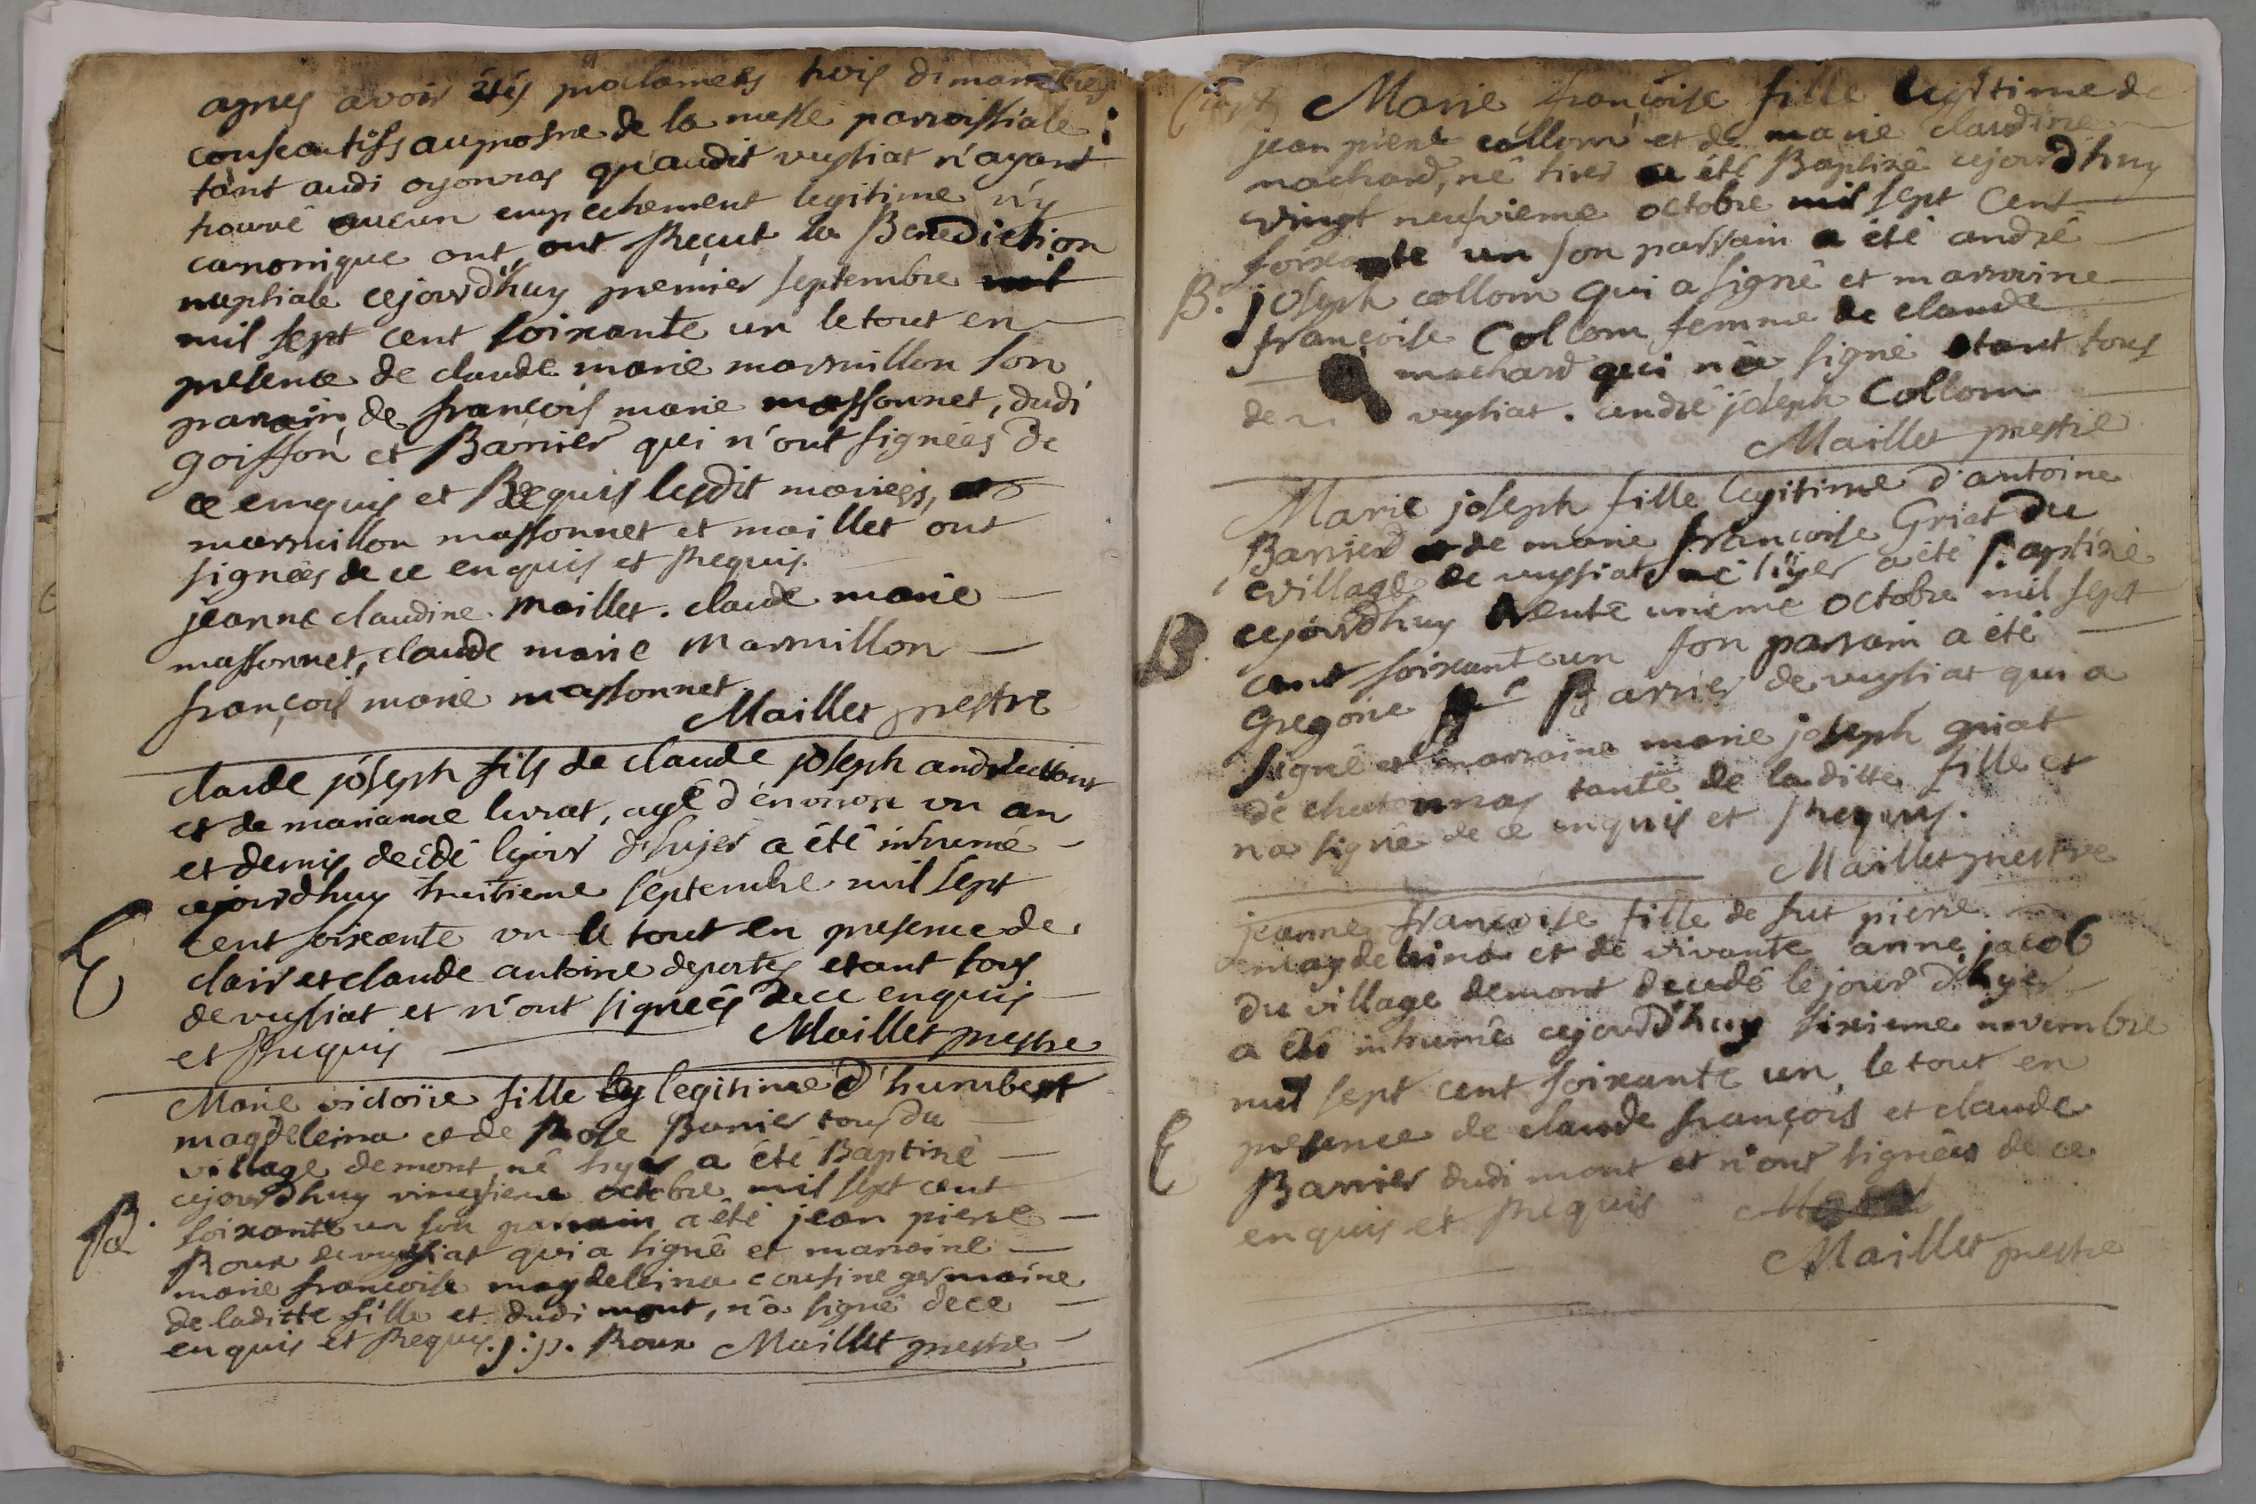 apres avoir étés proclamees trois dimanches
consecutifs au prosne de la messe parroissiale
tant audi oyonnas qu'audit veysiat n'ayant
trouvé aucun empechement legitime n'y
canonique ont, ont Reçut la Benediction
nuptiale cejourdhuy premier septembre mil
mil sept cent soixante un le tout en
presence de claude marie marmillon son
parrain de françois marie massonnet, dudi
goiffon et Barrier qui n'ont signées de
ce enquis et Requis lesdit mariees, et
marmillon massonnet et maillet ont
signées de ce enquis et Requis.
jeanne claudine maillet. claude marie
massonnet, claude marie marmillon
françois marie massonnet
Maillet prestre
claude joseph fils de claude joseph
et de marianne livrat, agé d'environ un an
et demis decedé lejour d'hyer a été inhumé
cejourdhuy huitieme septembre mil sept
cent soixante un le tout en presence de
clair et claude antoine deportes etant tous
de veysiat et n'ont signées de ce enquis
et Requis
Maillet prestre
E
Marie victoire fille leg legitime d'humbert
magdeleina et de Rose Barrier tous du
village demont né hyer a été Baptisé
cejourdhuy vingtieme octobre mil sept cent
soixante un son parrain a été jean pierre
Roux de veysiat qui a signé et marraine
marie françoise magdeleina cousine germaine
de laditte fille et dudi mont, n'a signé de ce
enquis et Requis. j: p. Roux Maillet prestre
B.
Marie françoise fille legitime de
jean pierre collom et de marie claudine
nachard, né hier a été Baptisé cejourdhuy
vingt neufvieme octobre mil sept cent
soixante un son parrain a été andré
joseph collom qui a signé et marraine
françoise Collom femme de claude
machard qui n'a signé etant tous
de veysiat. andré joseph Collom
Maillet prestre
B.
Marie joseph fille legitime d'antoine
Barrier et de marie françoise Griat du
village de veysiat né hyer a été Baptisé
cejourdhuy trente unieme octobre mil sept
cent soixante un son parrain a été
Gregoire Barrier de veysiat qui a
signé et marraine marie joseph griat
de chatonnas tante de laditte fille et
n'a signé de ce enquis et Requis.
Maillet prestre
B.
jeanne françoise fille de fut pierre
magdeleina et de vivante anne jacob
du village demont decedé le jour d'hyer
a été inhumé cejourdhuy sixieme novembre
mil sept cent soixante un, le tout en
presence de claude françois et claude
Barrier dudi mont et n'ont signées de ce
enquis et Requis
Maillet prestre
E